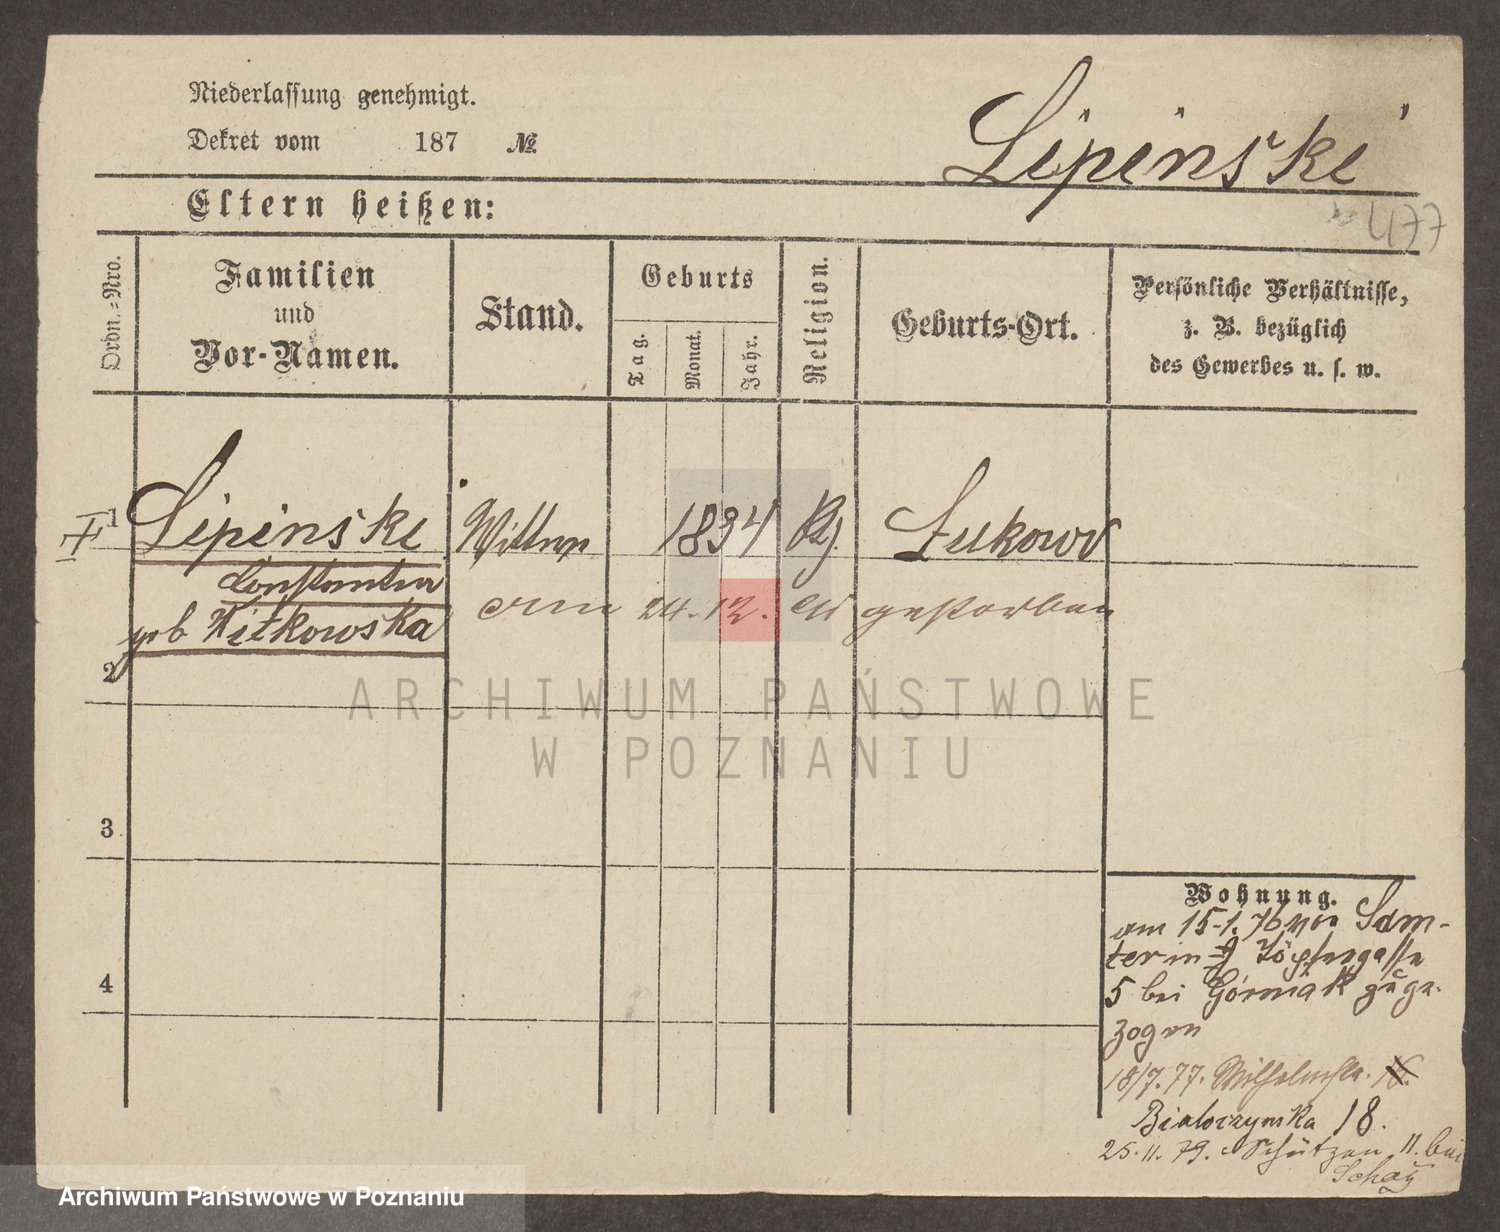 Niederlassung genehmigt.
Dekret vom 187 №
Lipinski
Eltern heißen:
477
Ordn.-Nro.
Familien
und
Vor-Namen.
Stand.
Geburts
Tag.
Monat.
Jahr.
Religion.
Geburts-Ort.
Persönliche Verhältnisse,
z. B. bezüglich
des Gewerbes u. s. w.
1
Lipinski Wittwe 1834 Lukowo
Constantia
geb Witkowska
am 24.12. gestorben
2
ARCHIWUM PAŃSTWOWE
W POZNANIU
3
4
Wohnung.
am 15-1.76 von Sam-
ter in Töpfergasse
5 bei Górniak zuge-
zogen
18/7.77. Wilhelmstr.
Bialoczynska 18.
25.11.79. Schützen 11. bei
Schatz
Archiwum Państwowe w Poznaniu